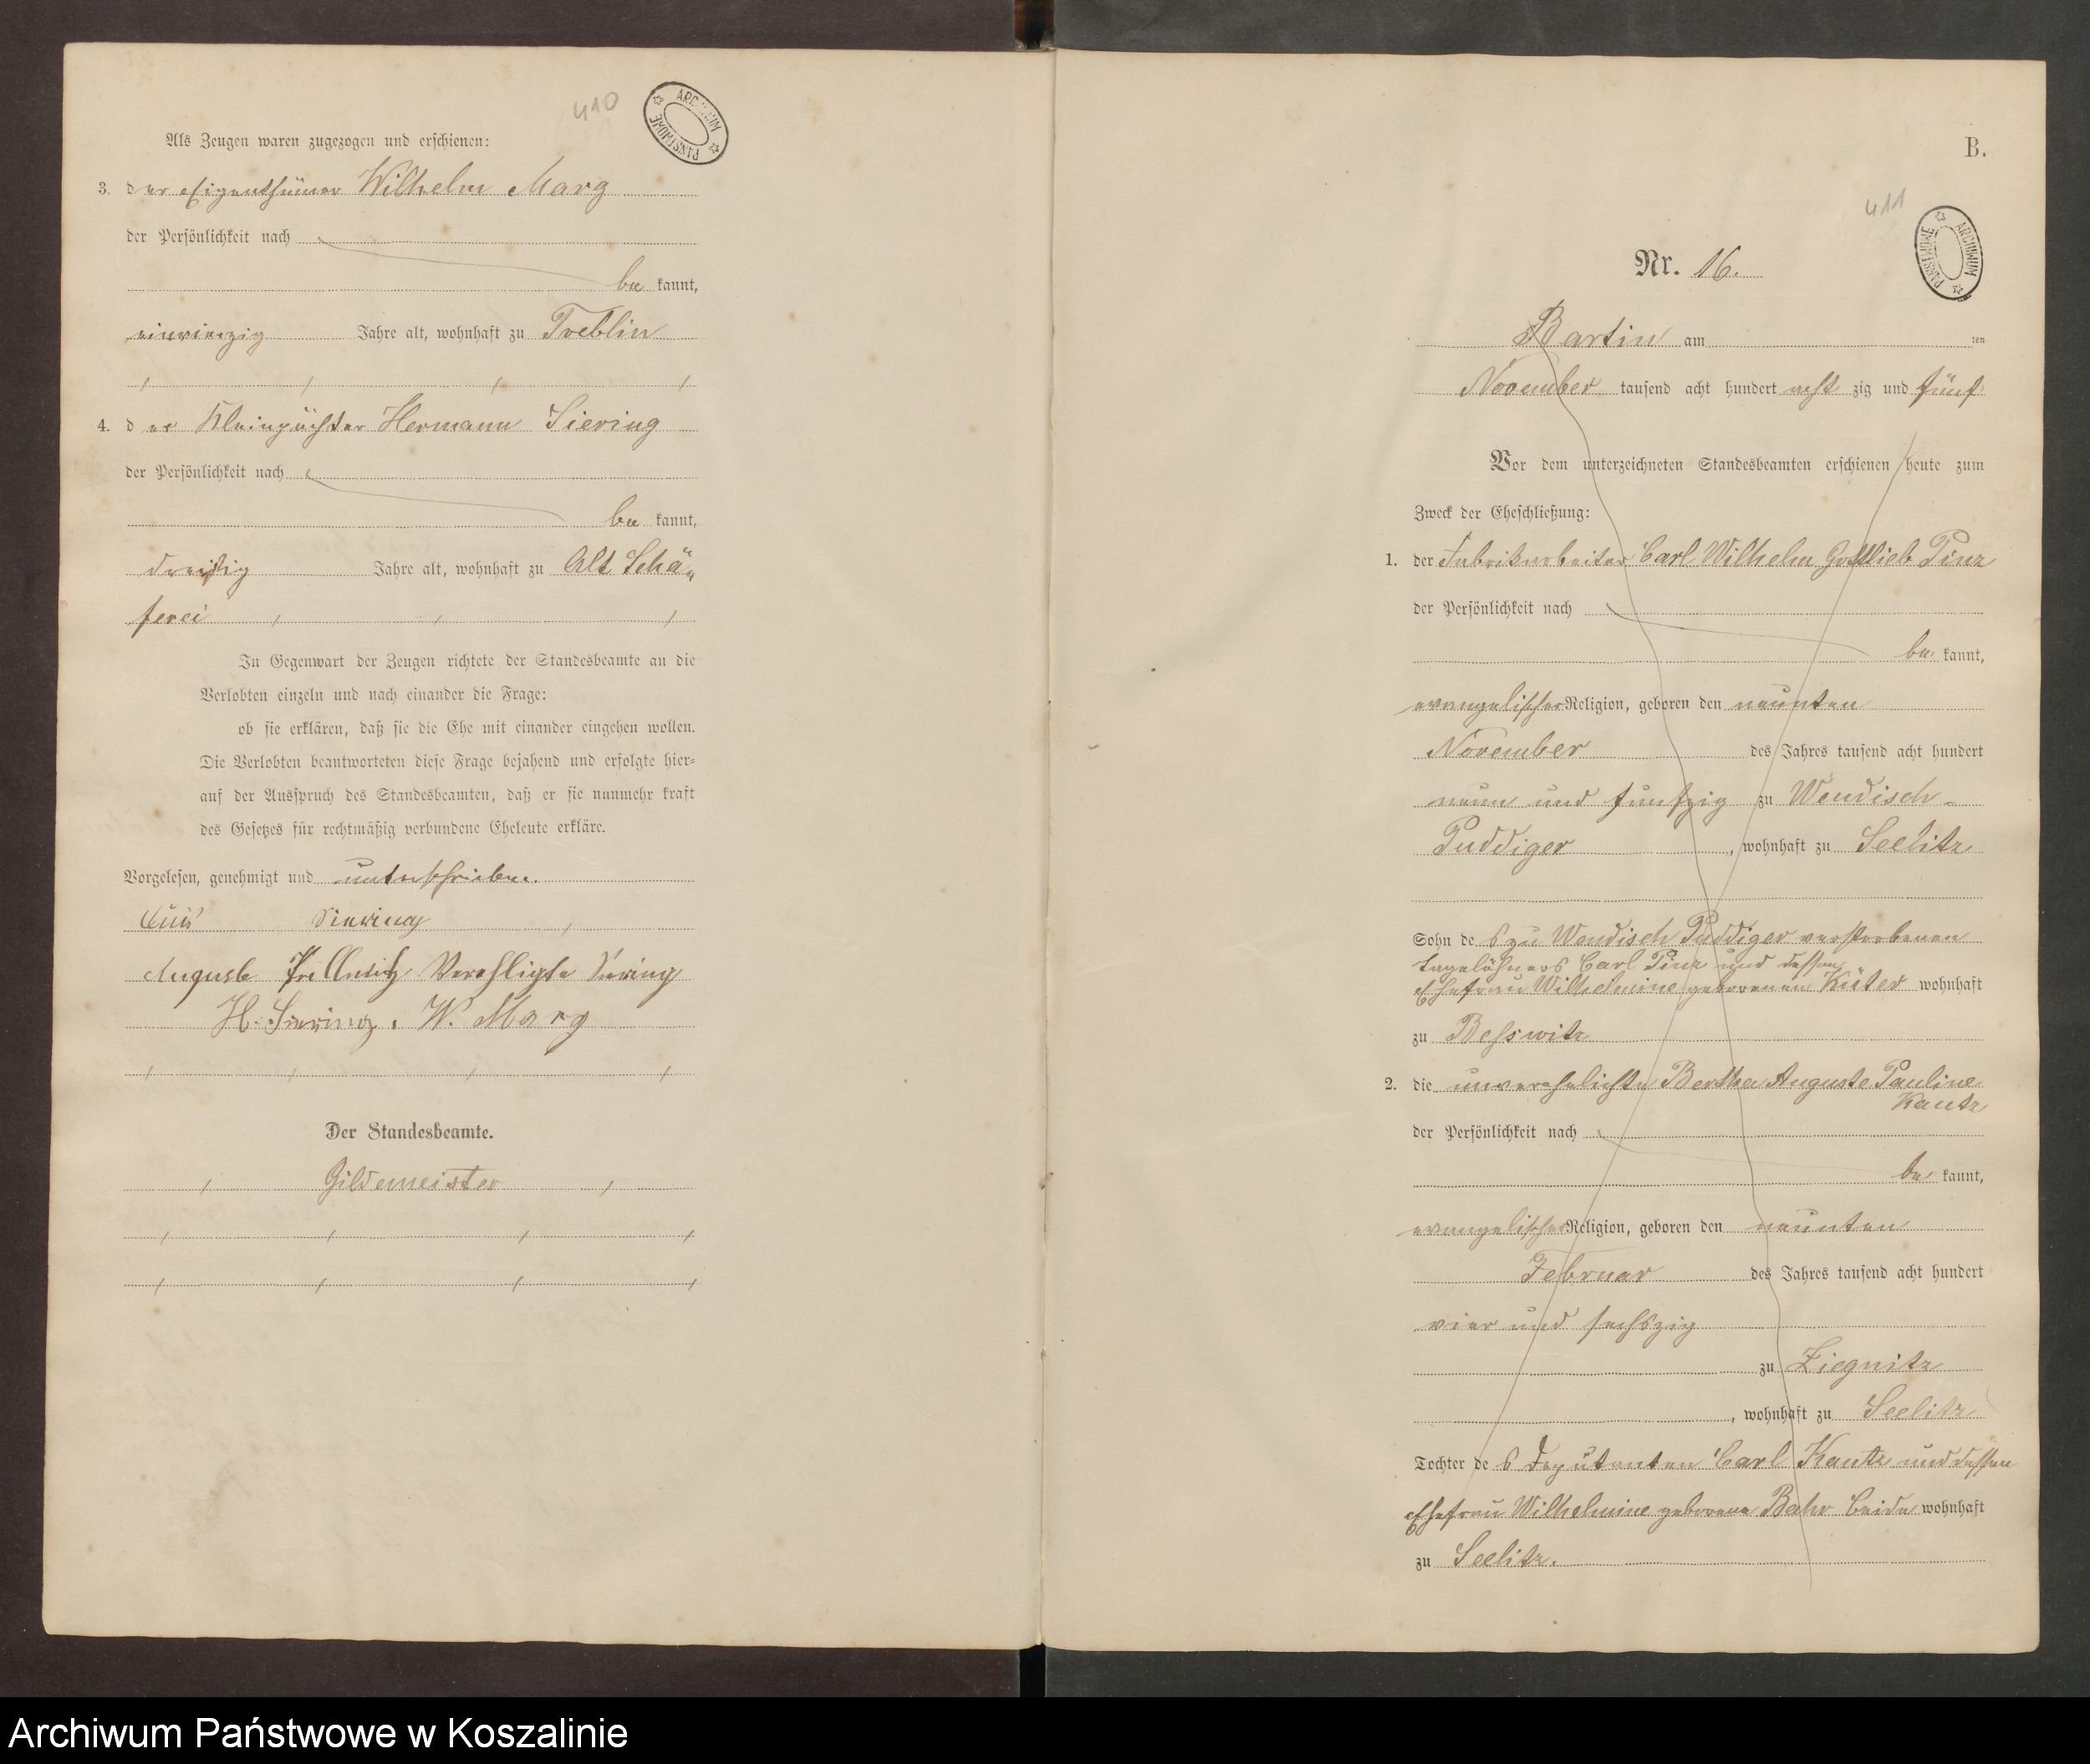 410
ARCHIWUM PAŃSTWOWE
Als Zeugen waren zugezogen und erschienen:
3. der Eigenthümer Wilhelm Marg
der Persönlichkeit nach
be kannt,
Jahre alt, wohnhaft zu Treblin
4. der Kleinpächter Hermann Siering
der Persönlichkeit nach
be kannt,
dreißig Jahre alt, wohnhaft zu Alt Schä„
ferei
In Gegenwart der Zeugen richtete der Standesbeamte an die
Verlobten einzeln und nach einander die Frage:
ob sie erklären, daß sie die Ehe mit einander eingehen wollen.
Die Verlobten beantworteten diese Frage bejahend und erfolgte hier=
auf der Ausspruch des Standesbeamten, daß er sie nunmehr kraft
des Gesetzes für rechtmäßig verbundene Eheleute erkläre.
Vorgelesen, genehmigt und unterschrieben.
Siering
Auguste Verehligte Siering
H. Siering. W. Marg
Der Standesbeamte.
Gildemeister
B.
411
ARCHIWUM PAŃSTWOWE
Nr. 16.
Bartin am ten
November tausend acht hundert acht zig und fünf
Vor dem unterzeichneten Standesbeamten erschienen heute zum
Zweck der Eheschließung:
1. der Fabrikarbeiter Carl Wilhelm Gottlieb Pinz
der Persönlichkeit nach
be kannt,
evangelischer Religion, geboren den neunten
November des Jahres tausend acht hundert
neun und funfzig zu Wendisch-
Puddiger, wohnhaft zu Seelitz
Sohn de s zu Wendisch Puddiger verstorbenen
Tagelöhners Carl Pinz und dessen
Ehefrau Wilhelmine geborenen Küter wohnhaft
zu Besswitz
2. die unverehelichte Bertha Auguste Pauline
Kautz
der Persönlichkeit nach
be kannt,
evangelischer Religion, geboren den neunten
Februar des Jahres tausend acht hundert
vier und sechszig
zu Ziegnitz
, wohnhaft zu Seelitz
Tochter de s Deputanten Carl Kautz und dessen
Ehefrau Wilhelmine geborene Bahr beide wohnhaft
zu Seelitz.
Archiwum Państwowe w Koszalinie